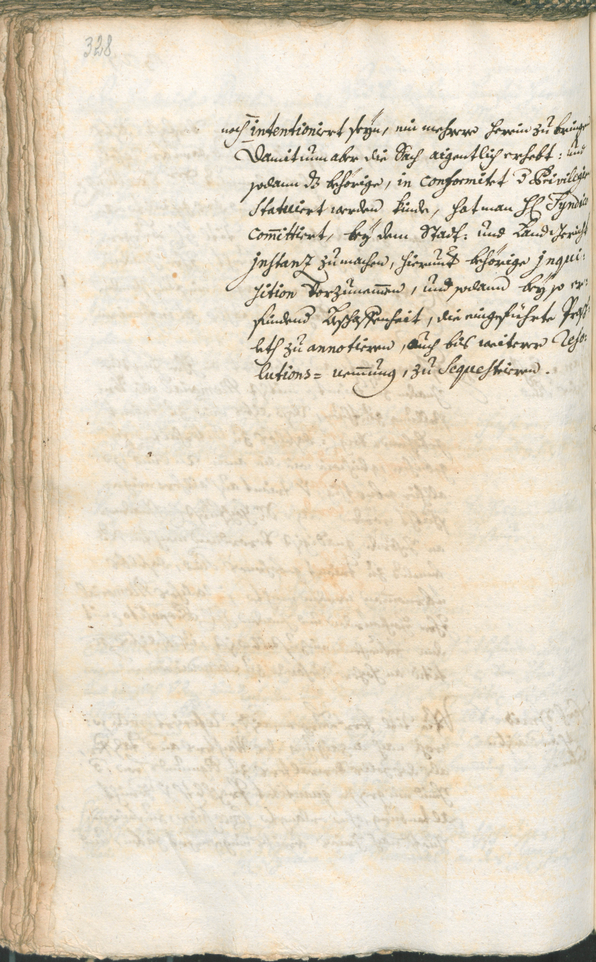 328
noch intentioniert seyn, ein mehrere herein zu bringe
Damit nun aber die Sach aigentlich erhebt: und
sodann dz behörige, in conformitet d Privilegie
statuiert werden kinde, hat man H Syndic
com̅ittiert, bey dem Statt: und Landgericht
jnstanz zu machen, hierauf behörige jnqui:
sition vorzunem̅en, und sodann bey so er:
findend Beschaffenheit, die eingeführte
zu annotieren, auch bis weitere Reso:
lutions= nem̅ung, zu Sequestrieren.